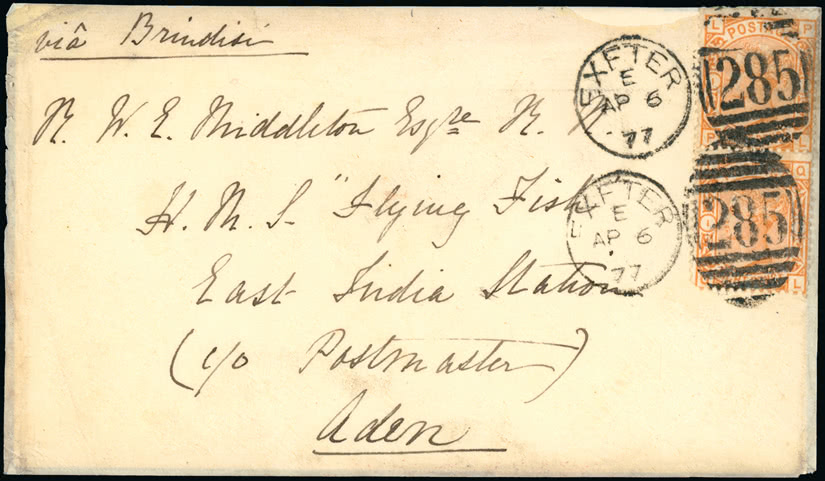 viâ Brindisi
R. W. E. Middleton Esqre R. N.
H. M. S. "Flying Fish
East India Station
(c/o Postmaster)
Aden
EXETER
E
AP 6
77
EXETER
E
AP 6
77
L POST P
285
P L
Q
285
L